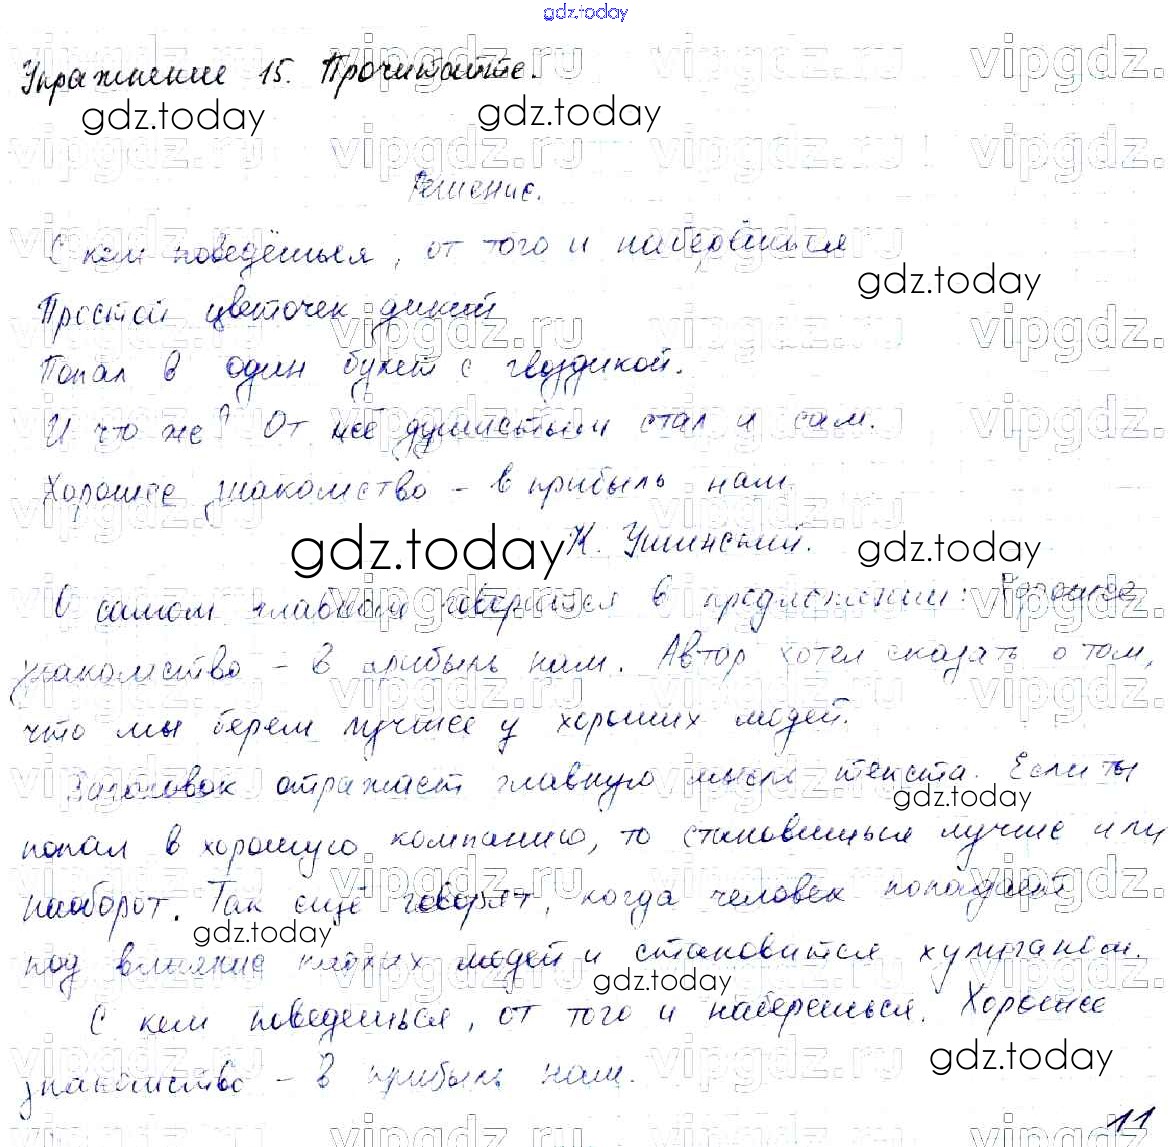 gdz.today
Упражнение 15. Прочитайте.
gdz.today gdz.today
Решение.
С кем поведёшься, от того и наберёшься
gdz.today
Простой цветочек дикий
Попал в один букет с гвоздикой.
И что же? От неё душистым стал и сам.
Хорошее знакомство – в прибыль нам.
gdz.today К. Ушинский. gdz.today
О самом главном говорится в предложении: Хорошее
знакомство – в прибыль нам. Автор хотел сказать о том,
что мы берем лучшее у хороших людей.
Заголовок отражает главную мысль текста. Если ты
gdz.today
попал в хорошую компанию, то становишься лучше или
наоборот. Так ещё говорят, когда человек попадает
gdz.today
под влияние плохих людей и становится хулиганом.
gdz.today
С кем поведешься, от того и наберешься. Хорошее
gdz.today
знакомство – в прибыль нам.
11